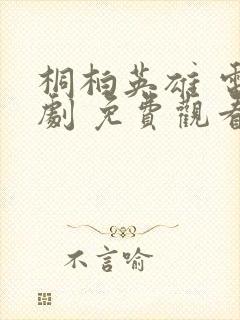 桐柏英雄 電
劇 免費觀看
不言喻